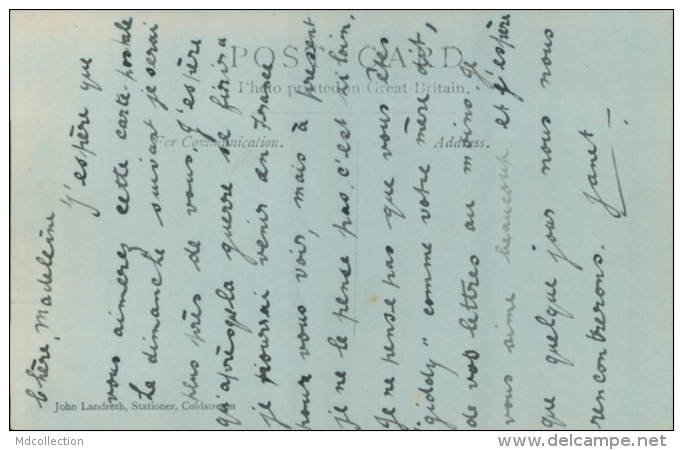 POST CARD
Photo printed in Great Britain.
For Communication.
Address.
Chère Madeleine
J'espère que
vous aimerez cette carte-postale
Le dimanche suivant je serai
plus près de vous. J'espère
qu'après la guerre se finira
je pourrai venir en France
pour vous voir, mais à présent
je ne le pense pas. c'est si loin,
Je ne pense pas que vous êtes
"giddy" comme votre mère dit,
de vos lettres au moins. Je
vous aime beaucoup et j'espère
que quelque jour nous nous
rencontrerons. Janet
John Landreth, Stationer, Coldstream
Mdcollection
www.delcampe.net